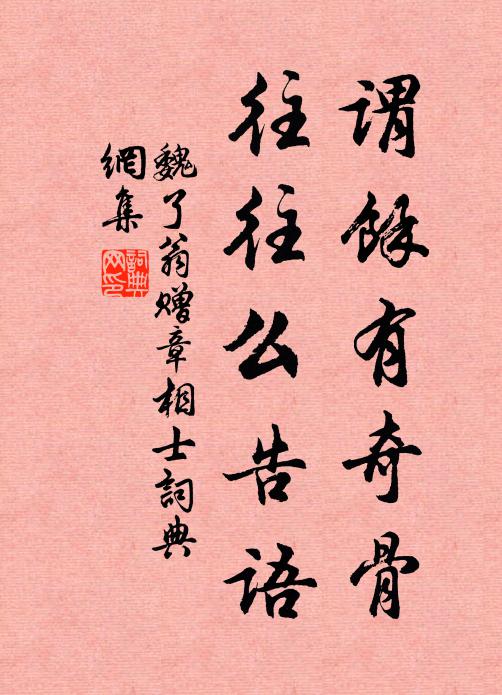 謂餘有奇骨
往往么告語
魏了翁赠章相士詞典
網集
詞典
网印